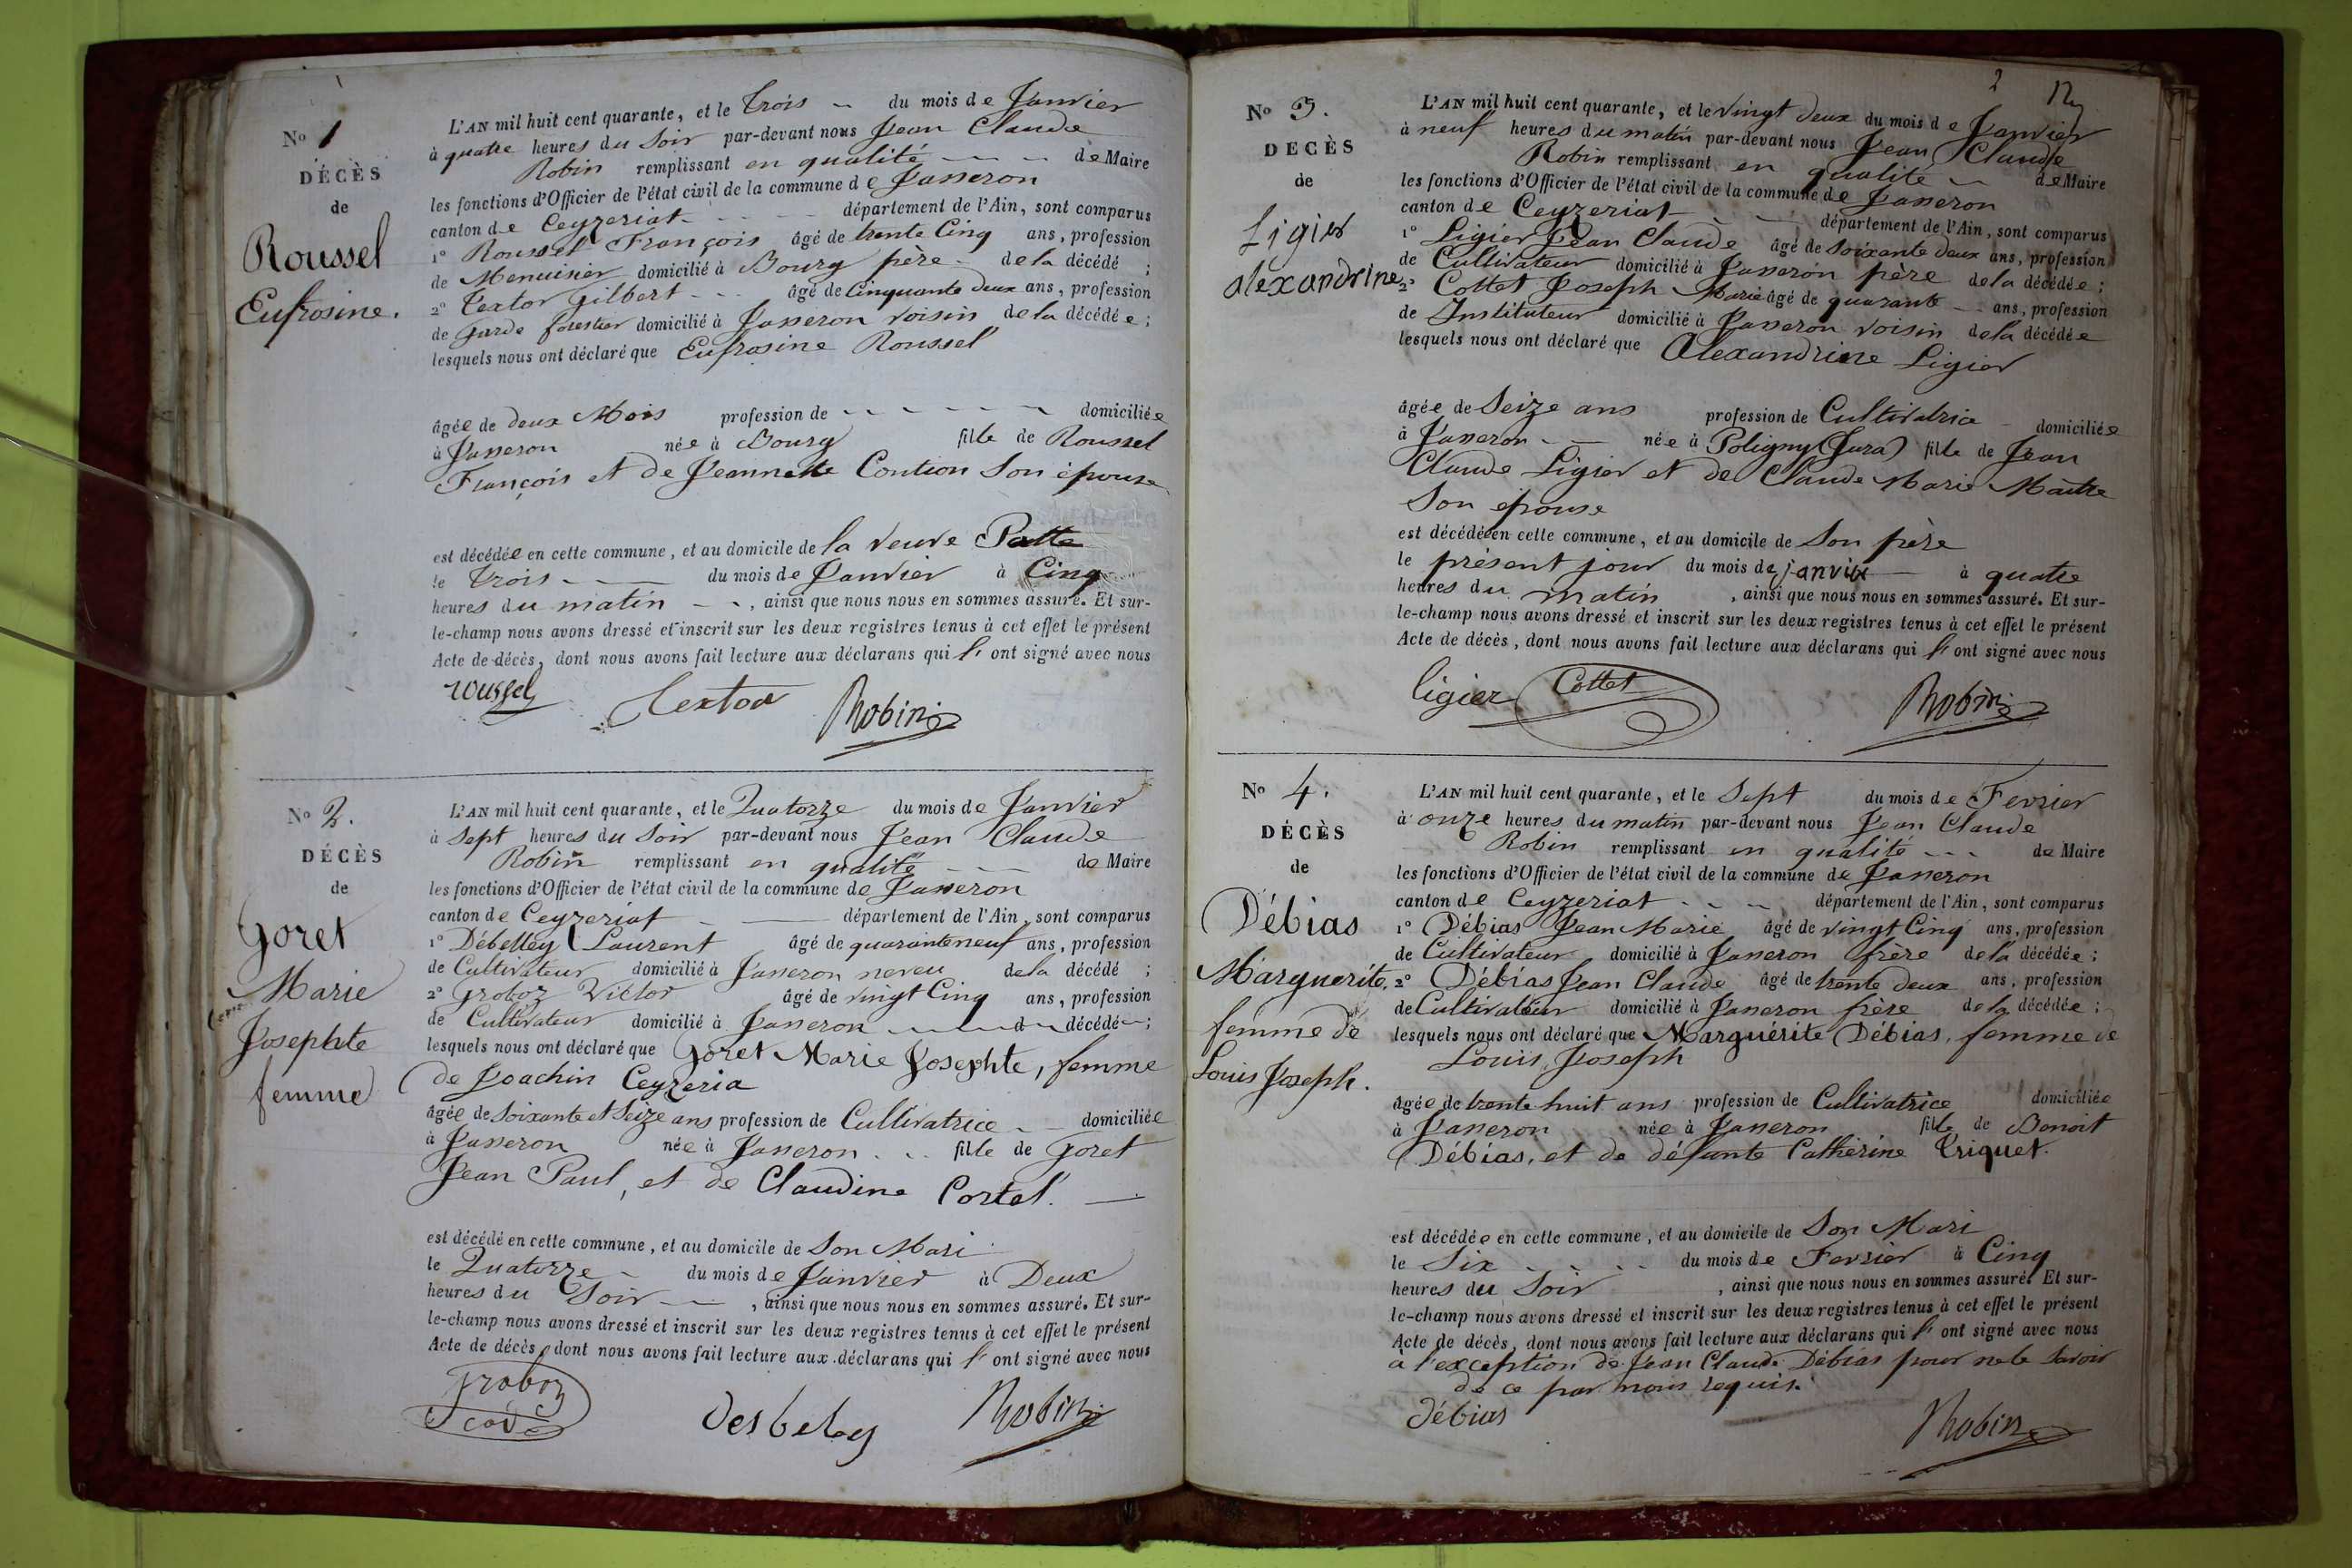 No 1
DÉCÈS
de
Roussel
Eufrosine.
L'AN mil huit cent quarante, et le trois du mois de Janvier
à quatre heures du Soir par-devant nous Jean Claude
Robin remplissant en qualité de Maire
les fonctions d'Officier de l'état civil de la commune de Jasseron
canton de Ceyzeriat département de l'Ain, sont comparus
1° Roussel François âgé de trente Cinq ans, profession
de Menuisier domicilié à Bourg père de la décédé ;
2° Textor Gilbert âgé de Cinquante deux ans, profession
de garde forestier domicilié à Jasseron voisin de la décédée ;
lesquels nous ont déclaré que Eufrosine Roussel
âgée de deux Mois profession de domiciliée
à Jasseron née à Bourg fille de Roussel
François et de Jeannette Contion Son épouse
est décédée en cette commune, et au domicile de la veuve Patte
le trois du mois de Janvier à Cinq
heures du matin , ainsi que nous nous en sommes assuré. Et sur-
le-champ nous avons dressé et inscrit sur les deux registres tenus à cet effet le présent
Acte de décès, dont nous avons fait lecture aux déclarans qui l' ont signé avec nous
roussel Textor Robin
No 2.
DÉCÈS
de
Goret
Marie
Josephte
femme
L'AN mil huit cent quarante, et le Quatorze du mois de Janvier
à Sept heures du Soir par-devant nous Jean Claude
Robin remplissant en qualité de Maire
les fonctions d'Officier de l'état civil de la commune de Jasseron
canton de Ceyzeriat département de l'Ain, sont comparus
1° Débelley Laurent âgé de quaranteneuf ans, profession
de Cultivateur domicilié à Jasseron neveu de la décédé ;
2° Groboz Victor âgé de vingt Cinq ans, profession
de Cultivateur domicilié à Jasseron d décédé ;
lesquels nous ont déclaré que Goret Marie Josephte, femme
de Joachin Ceyzeria
âgée de Soixante et Seize ans profession de Cultivatrice domiciliée
à Jasseron née à Jasseron fille de Goret
Jean Paul, et de Claudine Cortel.
est décédé en cette commune, et au domicile de Son Mari
le Quatorze du mois de Janvier à Deux
heures du Soir , ainsi que nous nous en sommes assuré. Et sur-
le-champ nous avons dressé et inscrit sur les deux registres tenus à cet effet le présent
Acte de décès, dont nous avons fait lecture aux déclarans qui l' ont signé avec nous
Groboz Desbeley Robin
2
No 3.
DÉCÈS
de
Ligier
alexandrine
L'AN mil huit cent quarante, et le vingt deux du mois de Janvier
à neuf heures du matin par-devant nous Jean Claude
Robin remplissant en qualité de Maire
les fonctions d'Officier de l'état civil de la commune de Jasseron
canton de Ceyzeriat département de l'Ain, sont comparus
1° Ligier Jean Claude âgé de Soixante deux ans, profession
de Cultivateur domicilié à Jasseron père de la décédée ;
2° Cottet Joseph Marie âgé de quarante ans, profession
de Instituteur domicilié à Jasseron voisin de la décédée
lesquels nous ont déclaré que Alexandrine Ligier
âgée de Seize ans profession de Cultivatrice domiciliée
à Jasseron née à Poligny (Jura) fille de Jean
Claude Ligier et de Claude Marie Maitre
Son épouse
est décédée en cette commune, et au domicile de Son père
le présent jour du mois de janvier à quatre
heures du matin , ainsi que nous nous en sommes assuré. Et sur-
le-champ nous avons dressé et inscrit sur les deux registres tenus à cet effet le présent
Acte de décès, dont nous avons fait lecture aux déclarans qui l' ont signé avec nous
ligier Cottet Robin
No 4.
DÉCÈS
de
Débias
Marguerite
femme de
Louis Joseph.
L'AN mil huit cent quarante, et le Sept du mois de Fevrier
à onze heures du matin par-devant nous Jean Claude
Robin remplissant en qualité de Maire
les fonctions d'Officier de l'état civil de la commune de Jasseron
canton de Ceyzeriat département de l'Ain, sont comparus
1° Débias Jean Marie âgé de vingt Cinq ans, profession
de Cultivateur domicilié à Jasseron frère de la décédée ;
2° Débias Jean Claude âgé de trente deux ans, profession
de Cultivateur domicilié à Jasseron frère de la décédée ;
lesquels nous ont déclaré que Marguérite Débias, femme de
Louis Joseph
âgée de trente huit ans profession de Cultivatrice domiciliée
à Jasseron née à Jasseron fille de Benoit
Débias, et de défunte Catherine Triquet.
est décédée en cette commune, et au domicile de Son Mari
le Six du mois de Fevrier à Cinq
heures du Soir , ainsi que nous nous en sommes assuré. Et sur-
le-champ nous avons dressé et inscrit sur les deux registres tenus à cet effet le présent
Acte de décès, dont nous avons fait lecture aux déclarans qui l' ont signé avec nous
à l'exception de Jean Claude Débias pour ne le Savoir
de ce par nous requis.
débias Robin